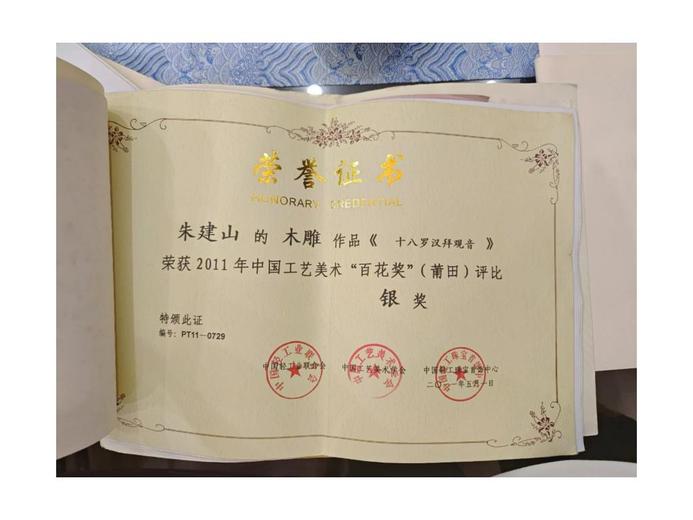 荣誉证书
HONORARY CREDENTIAL
朱建山 的 木雕 作品《 十八罗汉拜观音 》
荣获2011年中国工艺美术“百花奖”（莆田）评比
银 奖
特颁此证
编号：PT11—0729
中国轻工业联合会 中国工艺美术学会 中国轻工珠宝首饰中心
二〇一一年五月一日